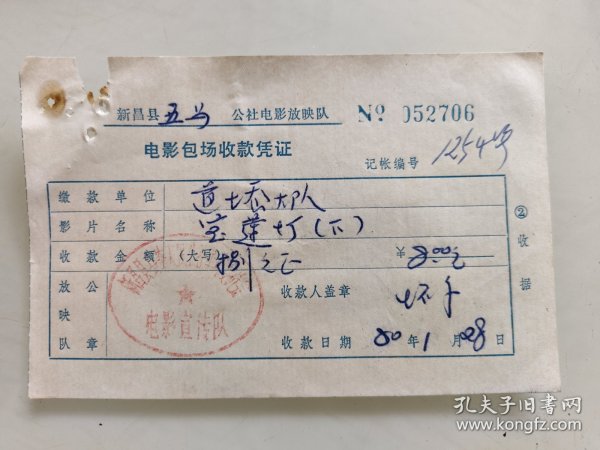 新昌县 五马 公社电影放映队 No 052706
电影包场收款凭证
记帐编号 1254号
缴款单位 大队
影片名称 宝莲灯(下)
收款金额 (大写) 捌元正 ¥ 8.00元
放映队公章
电影宣传队
收款人盖章
收款日期 80年1月28日
②收据
孔夫子旧书网
www.kongfz.com